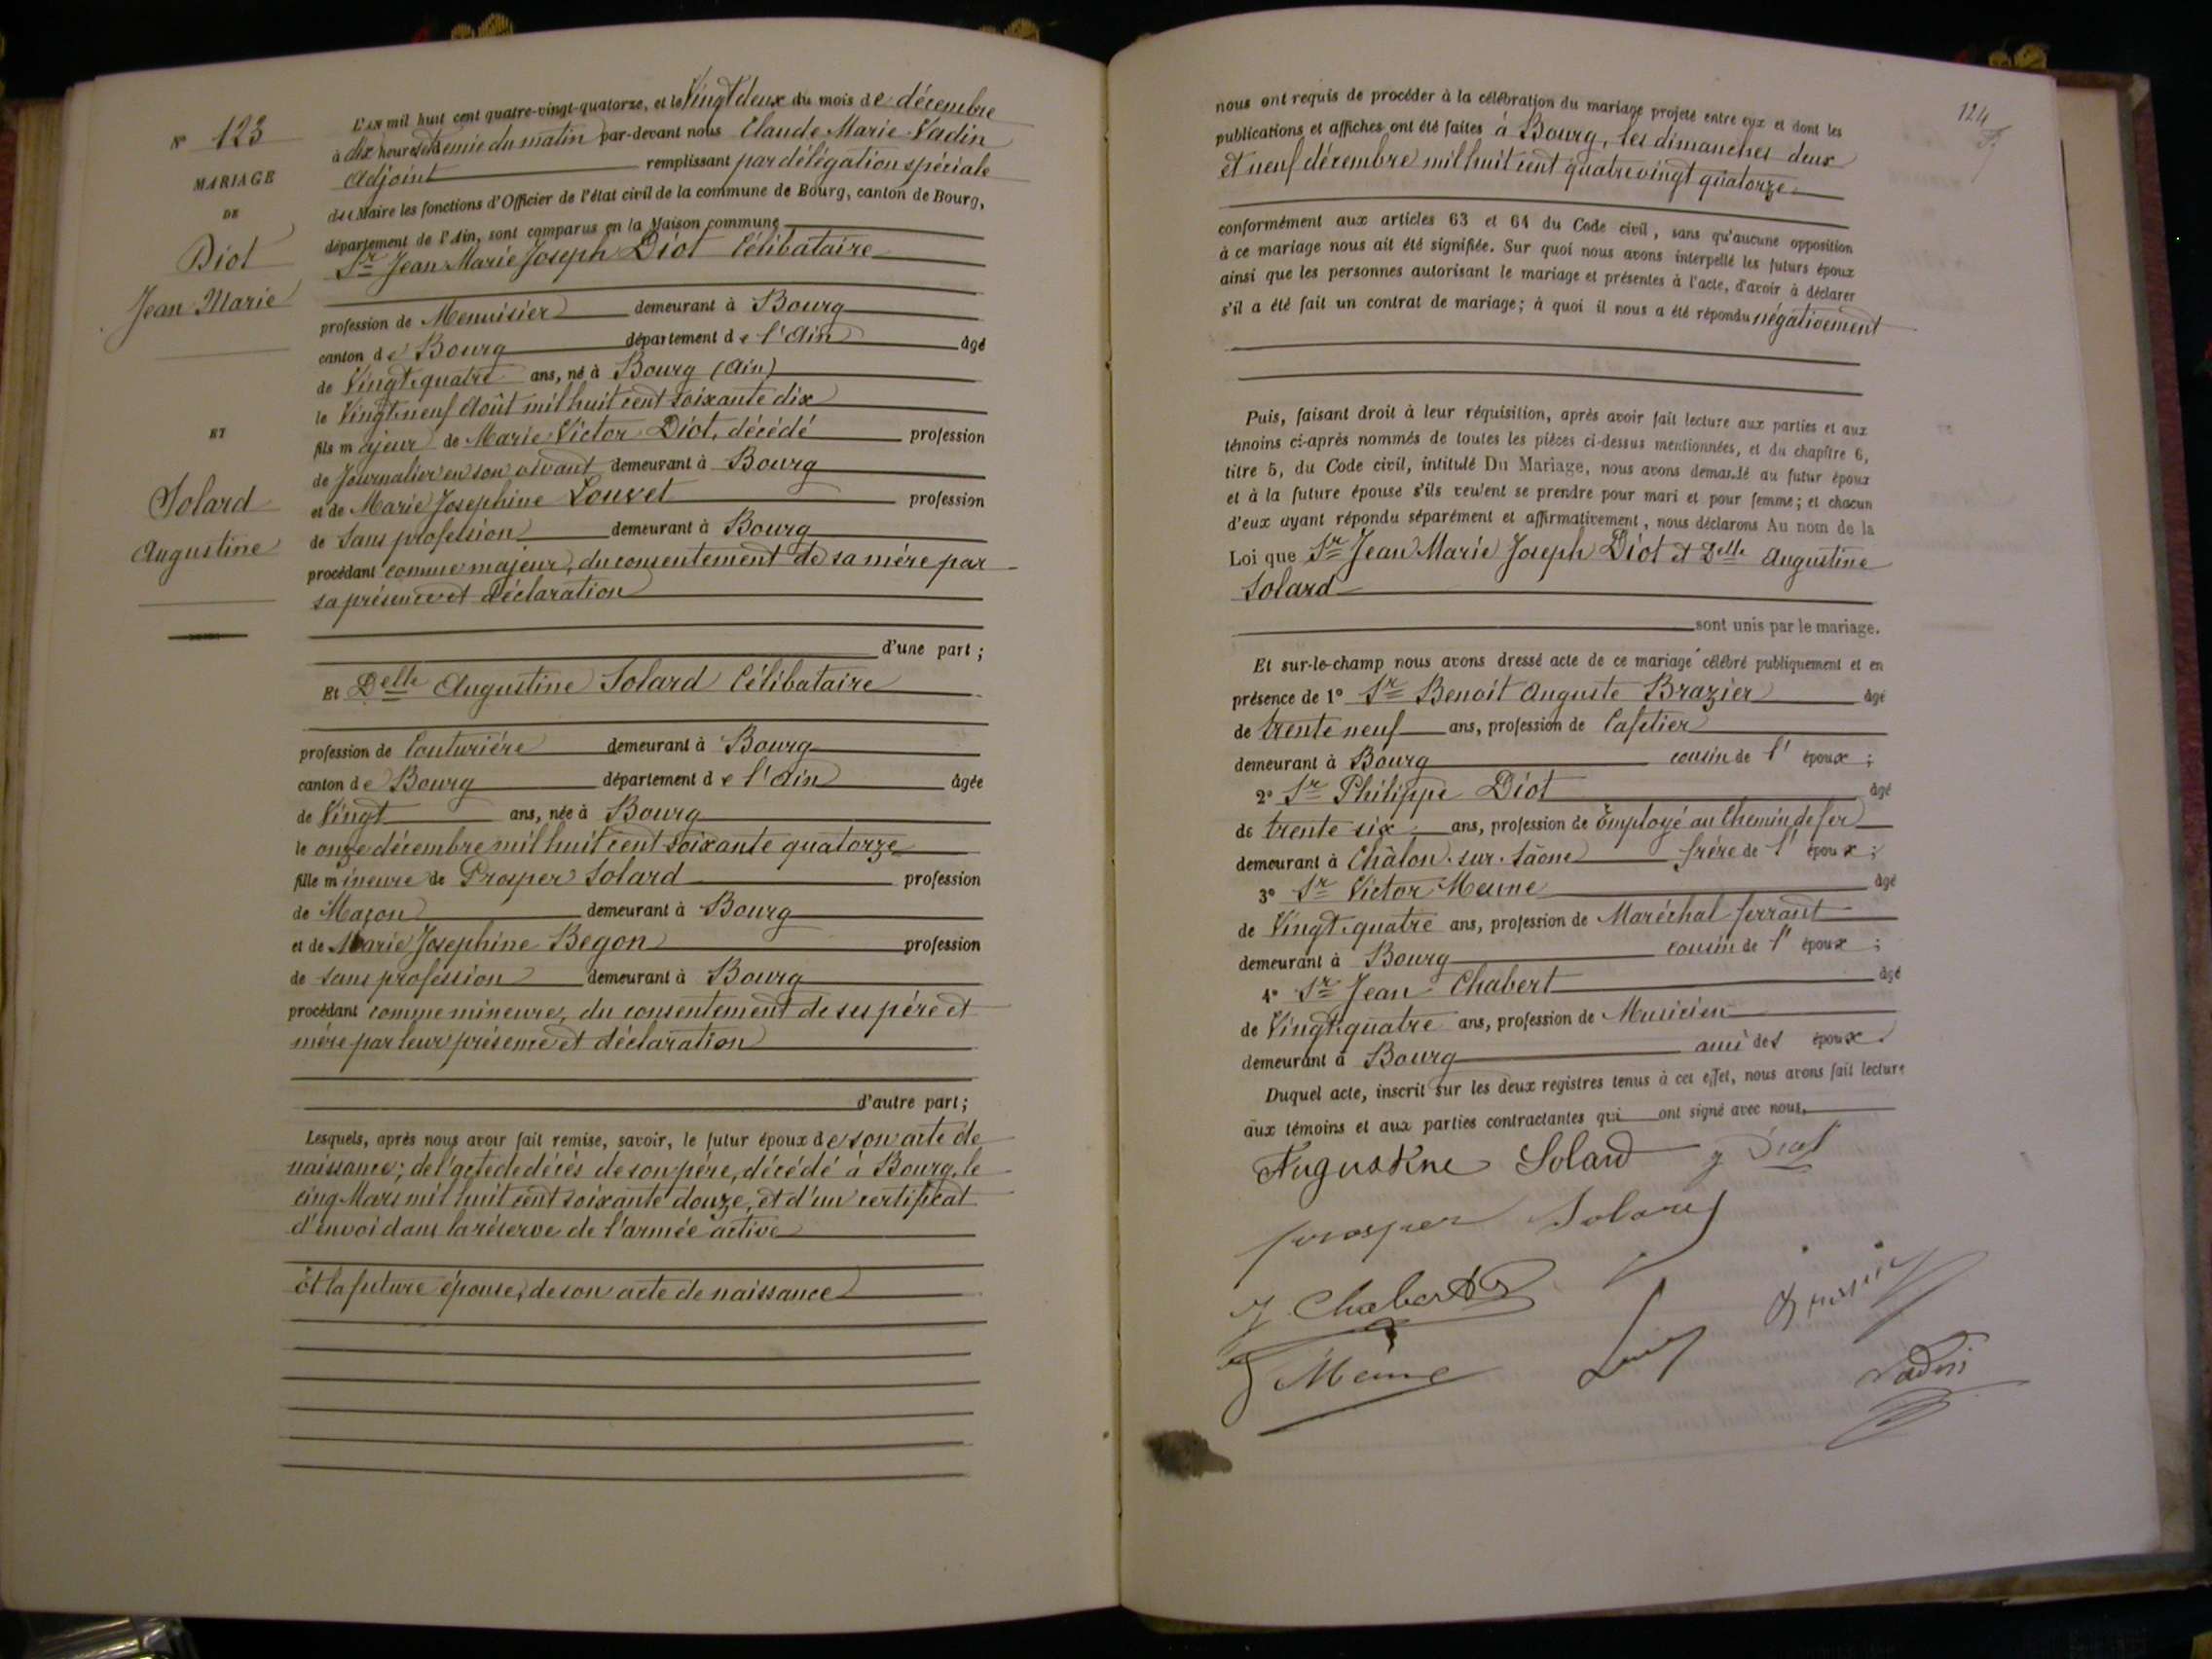 N° 123
MARIAGE
DE
Diot
Jean Marie
ET
Solard
Augustine
L'an mil huit cent quatre-vingt-quatorze, et le Vingt deux du mois de décembre
à dix heures et demie du matin par-devant nous Claude Marie Vadin
Adjoint remplissant par délégation spéciale
du Maire les fonctions d'Officier de l'état civil de la commune de Bourg, canton de Bourg,
département de l'Ain, sont comparus en la Maison commune
Sr Jean Marie Joseph Diot Célibataire
profession de Menuisier demeurant à Bourg
canton de Bourg département de l'Ain âgé
de Vingt-quatre ans, né à Bourg (Ain)
le Vingt-neuf Août mil huit cent soixante dix
fils majeur de Marie Victor Diot, décédé profession
de Journalier en son vivant demeurant à Bourg
et de Marie Josephine Louvet profession
de sans profession demeurant à Bourg
procédant comme majeur, du consentement de sa mère par
sa présence et déclaration
d'une part ;
Et Delle Augustine Solard Célibataire
profession de Couturière demeurant à Bourg
canton de Bourg département de l'Ain âgée
de Vingt ans, née à Bourg
le onze décembre mil huit cent soixante quatorze
fille mineure de Prosper Solard profession
de Maçon demeurant à Bourg
et de Marie Josephine Begon profession
de sans profession demeurant à Bourg
procédant comme mineure, du consentement de ses père et
mère par leur présence et déclaration
d'autre part ;
Lesquels, après nous avoir fait remise, savoir, le futur époux de son acte de
naissance; de l'acte de décès de son père, décédé à Bourg, le
cinq Mars mil huit cent soixante douze, et d'un certificat
d'envoi dans la réserve de l'armée active
Et la future épouse, de son acte de naissance
124
nous ont requis de procéder à la célébration du mariage projeté entre eux et dont les
publications et affiches ont été faites à Bourg, les dimanches deux
et neuf décembre mil huit cent quatre vingt quatorze
conformément aux articles 63 et 64 du Code civil, sans qu'aucune opposition
à ce mariage nous ait été signifiée. Sur quoi nous avons interpellé les futurs époux
ainsi que les personnes autorisant le mariage et présentes à l'acte, d'avoir à déclarer
s'il a été fait un contrat de mariage; à quoi il nous a été répondu négativement
Puis, faisant droit à leur réquisition, après avoir fait lecture aux parties et aux
témoins ci-après nommés de toutes les pièces ci-dessus mentionnées, et du chapitre 6,
titre 5, du Code civil, intitulé Du Mariage, nous avons demandé au futur époux
et à la future épouse s'ils veulent se prendre pour mari et pour femme; et chacun
d'eux ayant répondu séparément et affirmativement, nous déclarons Au nom de la
Loi que Sr Jean Marie Joseph Diot et Delle Augustine
Solard
sont unis par le mariage.
Et sur-le-champ nous avons dressé acte de ce mariage célébré publiquement et en
présence de 1° Sr Benoit Auguste Brazier âgé
de trente neuf ans, profession de Cafetier
demeurant à Bourg cousin de l'époux ;
2° Sr Philippe Diot âgé
de trente six ans, profession de Employé au Chemin de fer
demeurant à Châlon-sur-Saône frère de l'époux ;
3° Sr Victor Meune âgé
de Vingt-quatre ans, profession de Maréchal ferrant
demeurant à Bourg cousin de l'époux ;
4° Sr Jean Chabert âgé
de Vingt-quatre ans, profession de Musicien
demeurant à Bourg ami des époux.
Duquel acte, inscrit sur les deux registres tenus à cet effet, nous avons fait lecture
aux témoins et aux parties contractantes qui ont signé avec nous.
Auguskne Solard J Diot
prosper Solard
J Chabert
Meune
Vadin